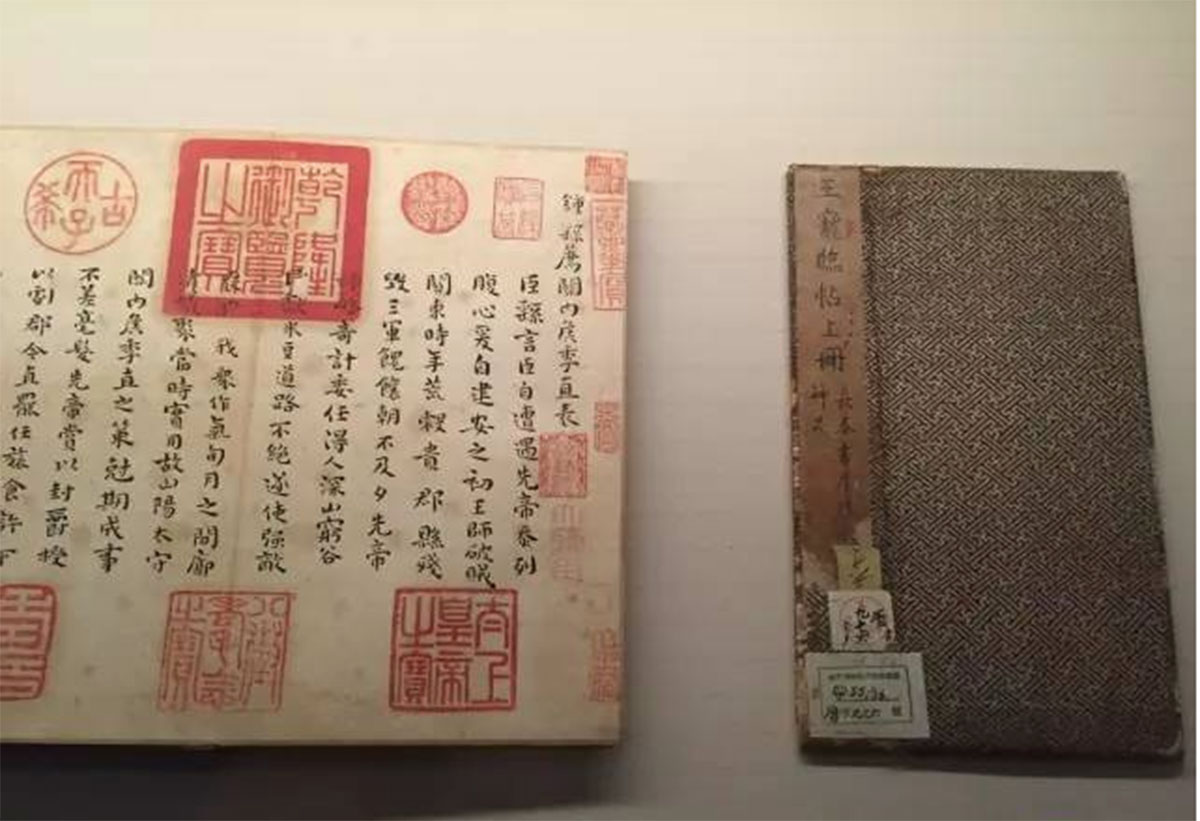 鍾繇薦關内矦季直表
臣繇言臣自遭遇先帝忝列
腹心爰自建安之初王師破賊
關東時年荒穀貴郡縣殘
毀三軍餽饟朝不及夕先帝
奇計委任得人深山窮谷
米豆道路不絶遂使強敵
我衆作氣旬月之間廓
聚當時實用故山陽太守
關内矦季直之策尅期成事
不差毫髮先帝賞以封爵授
以劇郡今直罷任旅食許下
乾隆御覽之寶
古希天子
太上皇帝之寶
八徵耄念之寶
王寵臨帖上冊